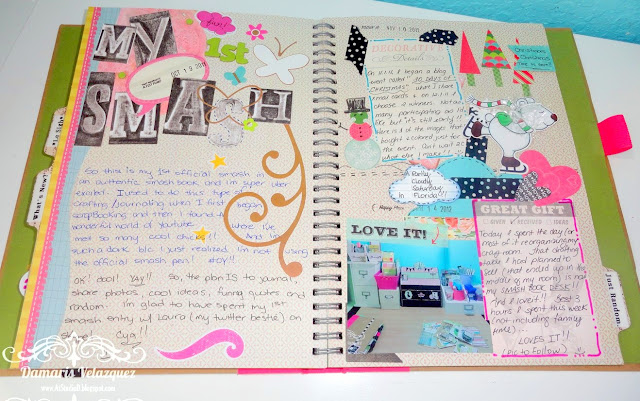 MY
fun!
1st
OCT 19 2011
SMASH
So this is my 1st official smash in
an authentic smash book and i'm super uber
excited. I used to do this type of
crafting/journaling when I first began
scrapbooking and then I found the
wonderful world of youtube where I've
met so many cool chicks!! And i'm
such a dork b/c I just realized I'm not using
the official smash pen!
OK! Cool! YAY!! So, the plan IS to journal,
share photos, cool ideas, funny quotes and
random. I'm glad to have spent my 1st
smash entry w/ Laura (my twitter bestie) on
Cya!!
What's New?
Damaris Velazquez
NOV 10 2011
DECORATIVE
Details
On 11.1.11 I began a blog
event called
CHRISTMAS" where I share
xmas cards & on
choose 2 winners. Not as
many participating as I'd
like but it's still early!!
Here is 1 of the images that
I bought & colored just for
the event. Can't wait 2 C
what else I make!!
Christmas
Christmas
time is here!!
A Partly
Cloudy
Saturday
In Florida!!
2012
LOVE IT!
GREAT GIFT
GIVEN RECEIVED IDEAS
Today I spent the day (or
most of it reorganizing my
craft room. That crafting
table I had planned to
sell (that ended up in the
middle of my room) is now
my SMASH BOOK DESK!!
And I love it!! Best 3
hours I spent this week
(not including family
time).
LOVES IT!!
(Pic to Follow)
Just Random